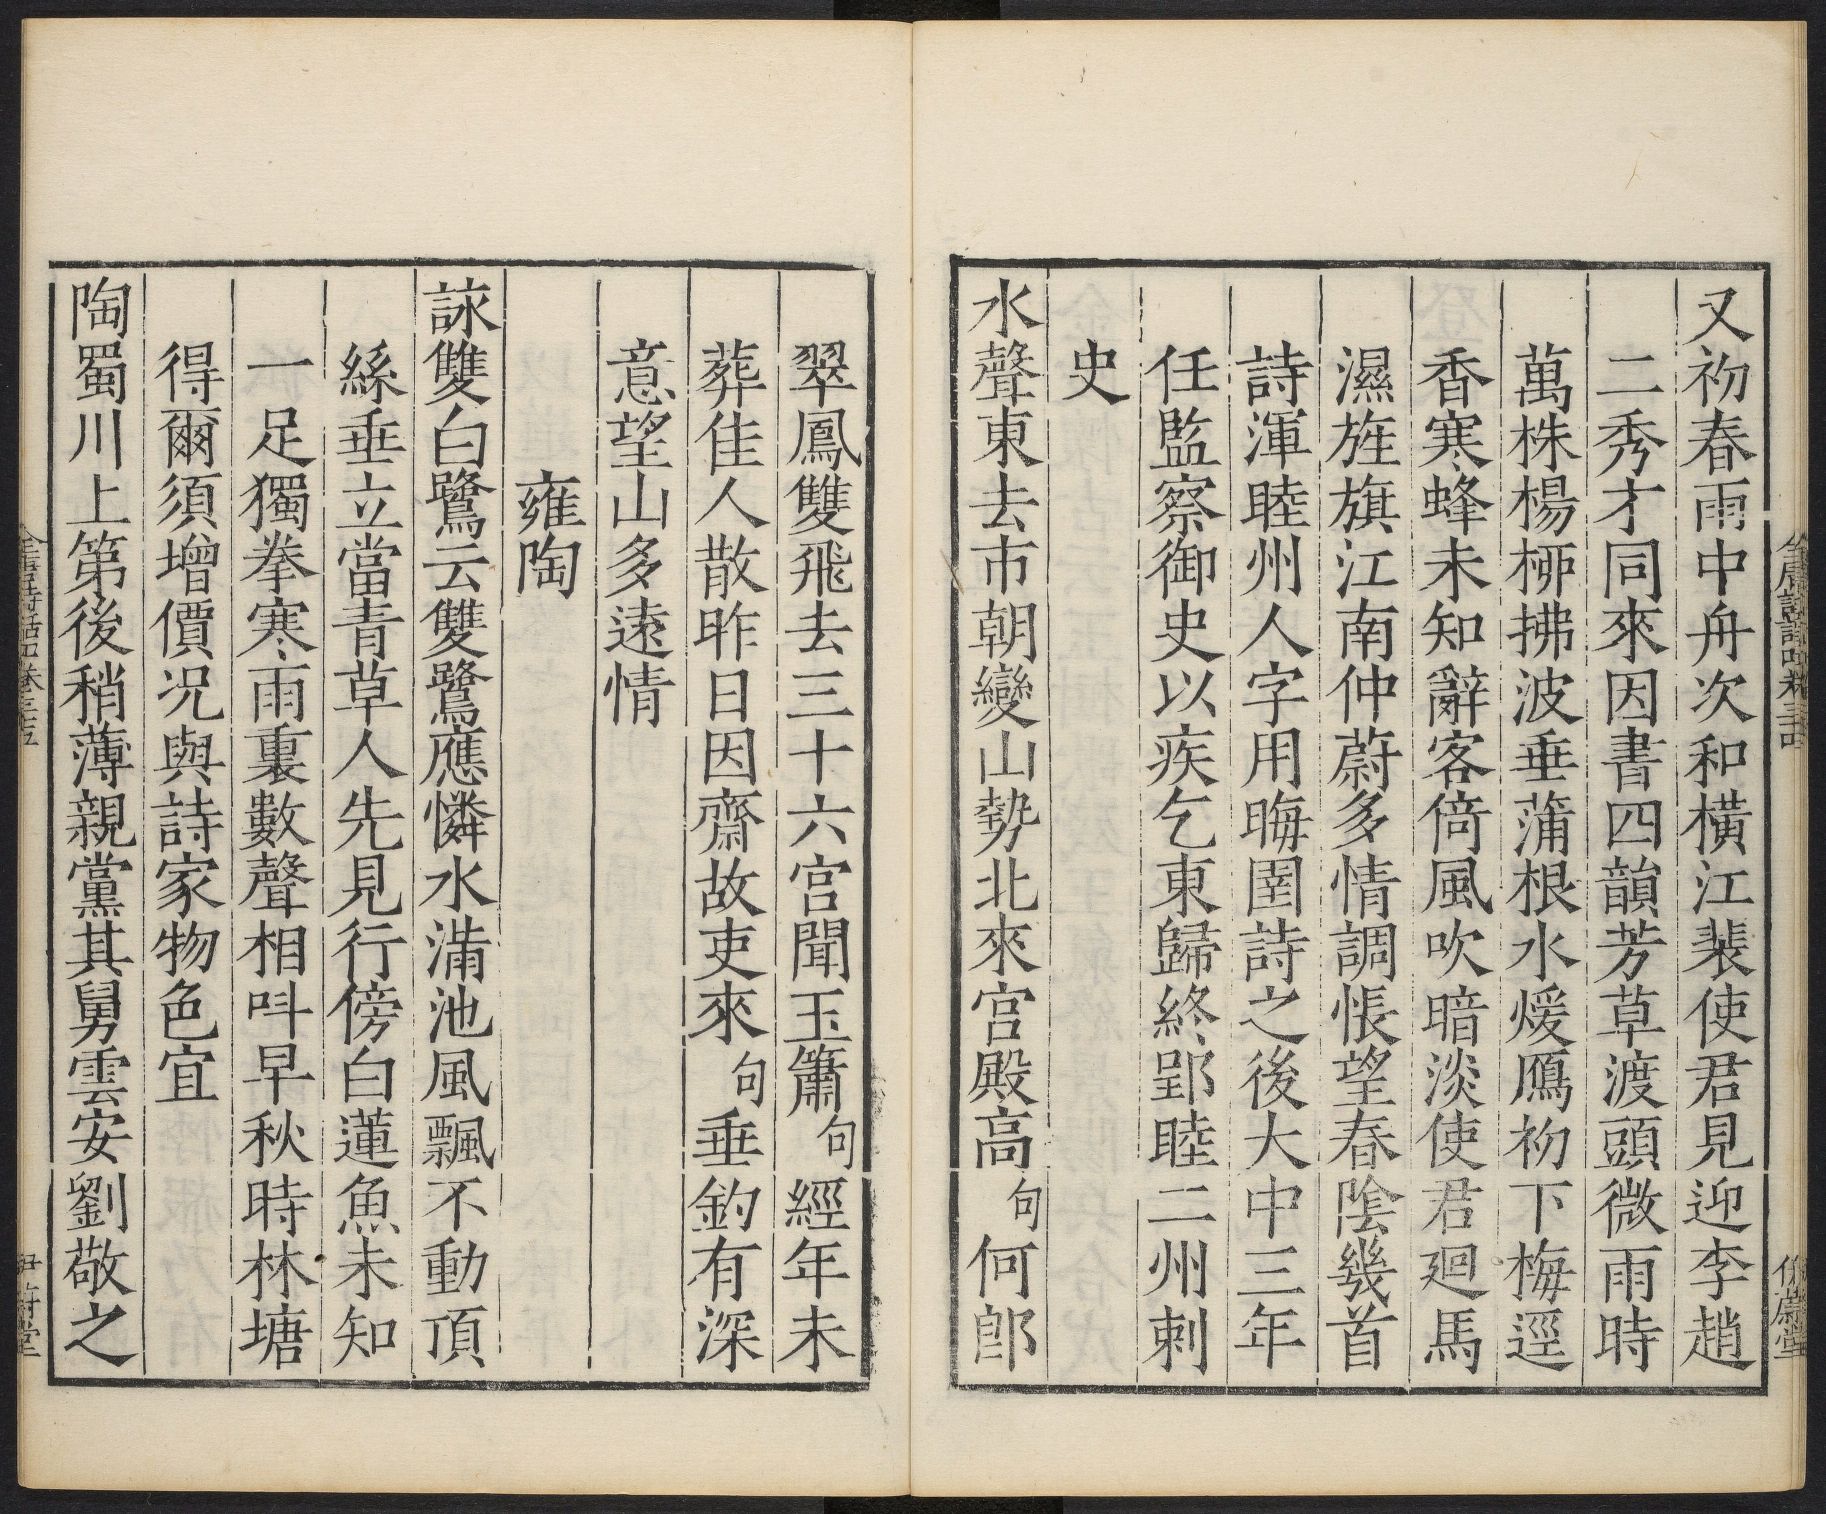 又初春雨中舟次和橫江裴使君見迎李趙
二秀才同來因書四韻芳草渡頭微雨時
萬株楊栁拂波垂蒲根水煖鴈初下梅逕
香寒蜂未知辭客倚風吹暗淡使君廻馬
濕旌旗江南仲蔚多情調悵望春陰幾首
詩渾睦州人字用晦圉詩之後大中三年
任監察御史以疾乞東歸終郢睦二州刺
史
水聲東去市朝變山勢北來宮殿高句何郎
翠鳳雙飛去三十六宮聞玉簫句經年未
葬佳人散昨日因齋故吏來句垂釣有深
意望山多遠情
雍陶
詠雙白鷺云雙鷺應憐水滿池風飄不動頂
絲垂立當青草人先見行傍白蓮魚未知
一足獨拳寒雨裏數聲相呌早秋時林塘
得爾須增價况與詩家物色宜
陶蜀川上第後稍薄親黨其舅雲安劉敬之